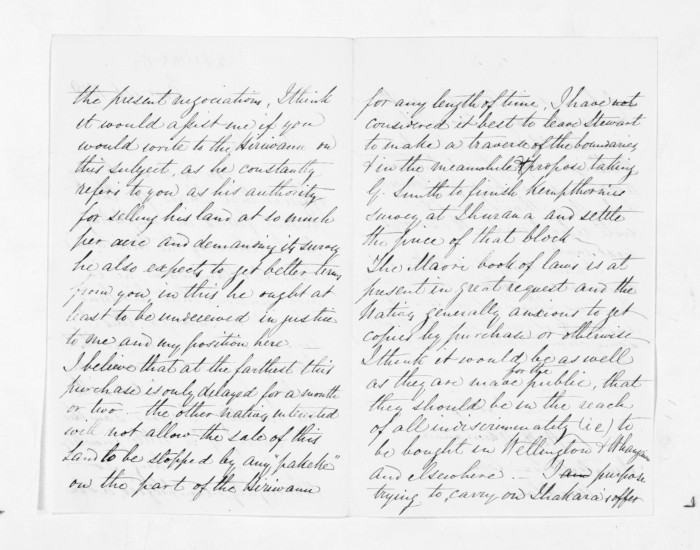 the present negociations, I think
it would assist me if you
would write to the Hiriwanu on
this subject, as he constantly
refers to you as his authority
for selling his land at so much
per acre and demanding its survey
he also expects to get better terms
from you, in this he ought at
least to be undeceived in justice
to me and my position here —
I believe that at the farthest this
purchase is only delayed for a month
or two — the other natives interested
will not allow the sale of this
Land to be stopped by any "pakeke"
on the part of the Hiriwanu
for any length of time, I have not
considered it best to leave Stewart
to make a traverse of the boundaries
& in the meanwhile I propose taking
G. Smith to finish Kempthornes
survey at Ihuraua and settle
the price of that block —
The Maori book of laws is at
present in great request and the
Natives generally anxious to get
copies by purchase or otherwise
I think it would be as well
as they are made for the public, that
they should be in the reach
of all indiscriminately (ie) to
be bought in Wellington & Whanganui
and elsewhere. — I am purpose
trying to carry on Ihakara's offer